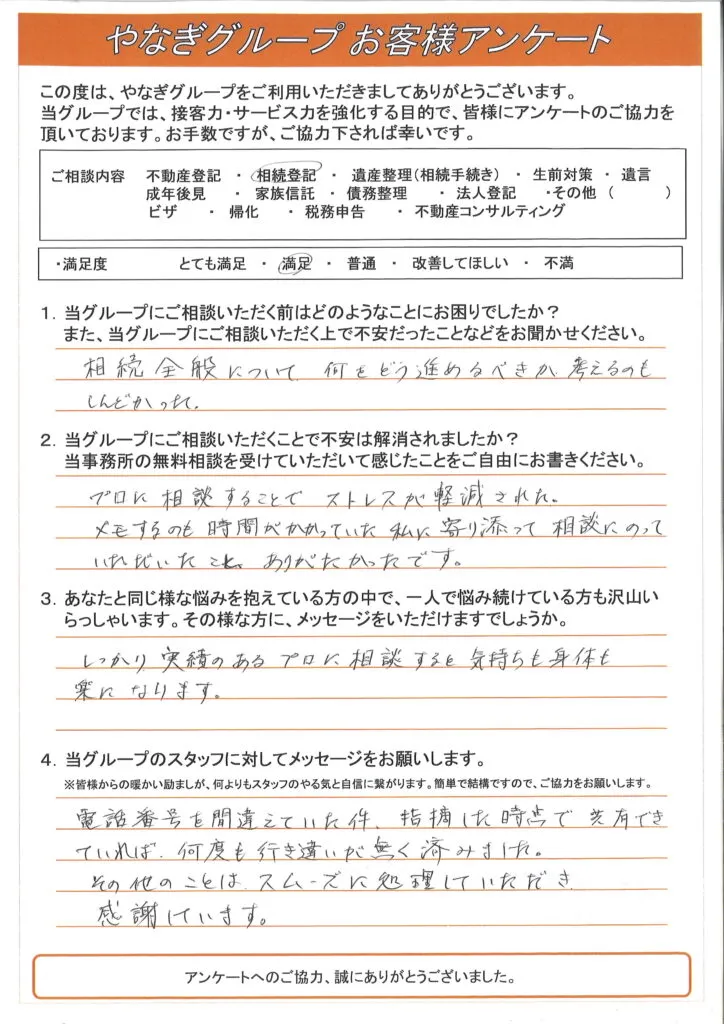 やなぎグループ お客様アンケート
この度は、やなぎグループをご利用いただきましてありがとうございます。
当グループでは、接客力・サービス力を強化する目的で、皆様にアンケートのご協力を
頂いております。お手数ですが、ご協力下されば幸いです。
ご相談内容 不動産登記 ・ 相続登記 ・ 遺産整理(相続手続き) ・ 生前対策 ・ 遺言
成年後見 ・ 家族信託 ・ 債務整理 ・ 法人登記 ・その他 ( )
ビザ ・ 帰化 ・ 税務申告 ・ 不動産コンサルティング
・満足度 とても満足 ・ 満足 ・ 普通 ・ 改善してほしい ・ 不満
1. 当グループにご相談いただく前はどのようなことにお困りでしたか?
また、当グループにご相談いただく上で不安だったことなどをお聞かせください。
相続全般について、何をどう進めるべきか、考えるのも
しんどかった。
2. 当グループにご相談いただくことで不安は解消されましたか?
当事務所の無料相談を受けていただいて感じたことをご自由にお書きください。
プロに相談することでストレスが軽減された。
メモするのも時間がかかっていた私に寄り添って相談にのって
いただいたこと、ありがたかったです。
3. あなたと同じ様な悩みを抱えている方の中で、一人で悩み続けている方も沢山い
らっしゃいます。その様な方に、メッセージをいただけますでしょうか。
しっかり実績のあるプロに相談すると気持ちも身体も
楽になります。
4. 当グループのスタッフに対してメッセージをお願いします。
※皆様からの暖かい励ましが、何よりもスタッフのやる気と自信に繋がります。簡単で結構ですので、ご協力をお願いします。
電話番号を間違えていた件、指摘した時点で共有でき
ていれば、何度も行き違いが無く済みました。
その他のことは、スムーズに処理していただき
感謝しています。
アンケートへのご協力、誠にありがとうございました。